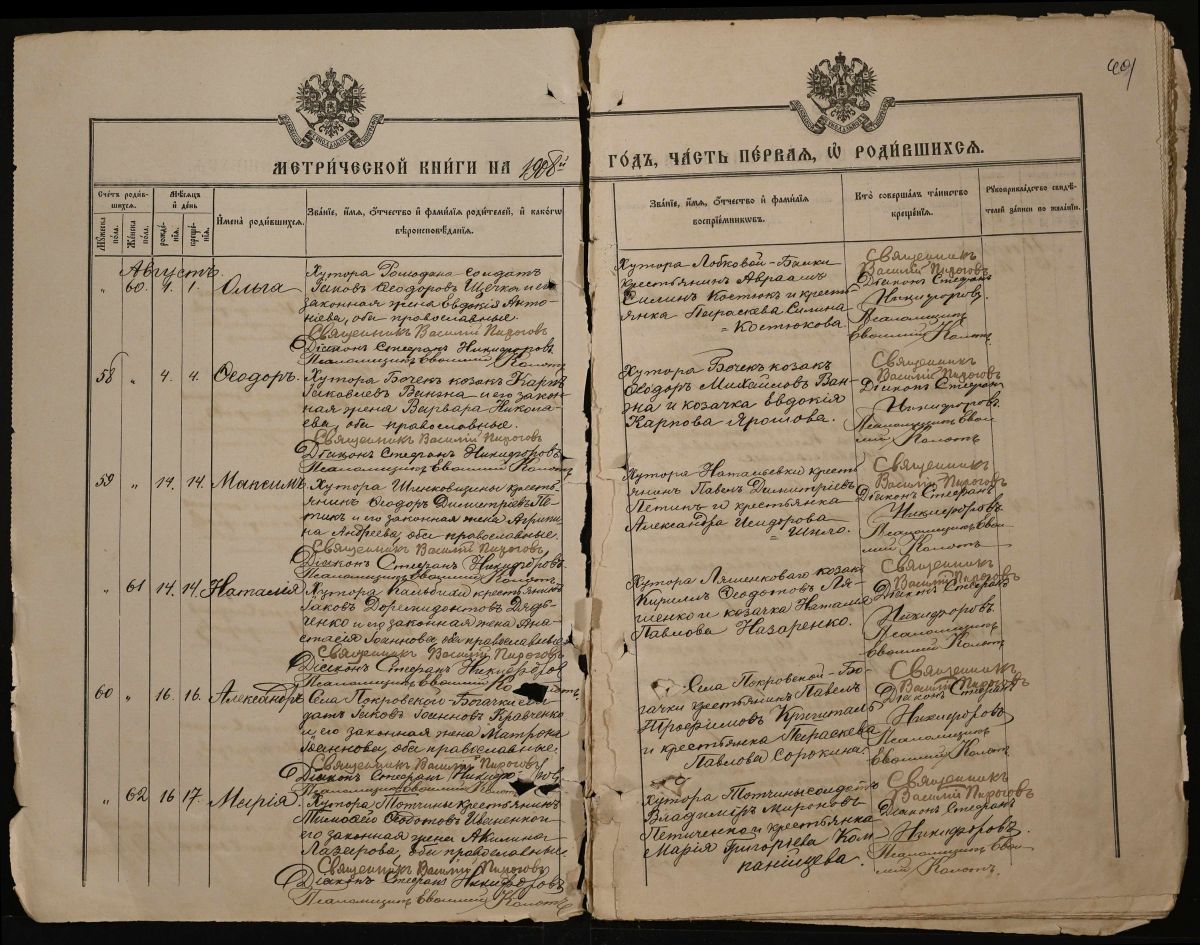 401
МЕТРИ́ЧЕСКОЙ КНИ́ГИ НА 1908й
ГО́ДЪ, ЧА́СТЬ ПЕ́РВАЯ, Ѡ҆ РОДИ́ВШИХСЯ.
Сче́тъ роди́в-
шихся.
Мѣ́сяцъ
и҆ де́нь
Мꙋ́жеска
по́ла.
Же́нска
по́ла.
рожде́-
нія.
креще́-
нія.
И҆мена̀ роди́вшихся.
Зва́ніе, и҆́мя, ѻ҆́тчество и҆ фами́лія роди́телей, и҆ како́гѡ
вѣроисповѣ́данія.
Зва́ніе, и҆́мя, ѻ҆́тчество и҆ фами́лія
воспріе́мникѡвъ.
Кто̀ соверша́лъ та́инство
креще́нія.
Рꙋкоприкла́дство свидѣ́-
телей за́писи по жела́нію.
Августъ
" 60. 4. 1. Ольга
Хутора Ромодана солдатъ
Іаковъ Ѳеодоровъ Щечка и его
законная жена Евдокія Анто-
ніева, оба православные.
Священникъ Василій Пироговъ
Діаконъ Стефанъ Никифоровъ
Псаломщикъ Евѳимій Колотъ
Хутора Лобковой-Балки
крестьянинъ Авраамъ
Силинъ Костюкъ и кресть-
янка Параскева Силина
= Костюкова.
Священникъ
Василій Пироговъ
Діаконъ Стефанъ
Никифоровъ.
Псаломщикъ
Евѳимій Колотъ
58 " 4. 4. Ѳеодоръ.
Хутора Бочекъ козакъ Карпъ
Іаковлевъ и его закон-
ная жена Варвара Никола-
ева, оба православные.
Священникъ Василій Пироговъ
Діаконъ Стефанъ Никифоровъ
Псаломщикъ Евѳимій Колотъ
Хутора Бочекъ козакъ
Ѳеодоръ Михайловъ Ван-
жа и козачка Евдокія
Карпова Ярошова.
Священникъ
Василій Пироговъ
Діаконъ Стефанъ
Никифоровъ.
Псаломщикъ Евѳи-
мій Колотъ
59 " 14. 14. Максимъ.
Хутора Шенковщины кресть-
янинъ Ѳеодоръ Димитріевъ Пе-
тикъ и его законная жена Агрипи-
на Андреева, оба православные.
Священникъ Василій Пироговъ
Діаконъ Стефанъ Никифоровъ
Псаломщикъ Евѳимій Колотъ
Хутора Натальевки кресть-
янинъ Павелъ Димитріевъ
Петикъ и крестьянка
Александра Исидорова
= Шило.
Священникъ
Василій Пироговъ
Діаконъ Стефанъ
Никифоровъ
Псаломщикъ Евѳи-
мій Колотъ
" 61 14. 14. Наталія
Хутора крестьянинъ
Іаковъ Доримидонтовъ Дядь-
енко и его законная жена Ана-
стасія Іоаннова, оба православные
Священникъ Василій Пироговъ
Діаконъ Стефанъ Никифоров
Псаломщикъ Евѳимій Колотъ
Хутора Ляшенковаго козакъ
Кириллъ Ѳеодотовъ Ля-
шенко и козачка Наталія
Павлова Назаренко.
Священникъ
Василій Пироговъ
Діаконъ Стефанъ
Никифоровъ
Псаломщикъ
Евѳимій Колотъ
60 " 16. 16. Александръ
Села Покровской-Богачки сол-
датъ Іаковъ Іоанновъ Кравченко
и его законная жена Матрона
Іоаннова, оба православные.
Священникъ Василій Пироговъ
Діаконъ Стефанъ Никифоровъ
Псаломщикъ Евѳимій Колотъ
Села Покровской-Бо-
гачки крестьянинъ Павелъ
Трофимовъ
и крестьянка Параскева
Павлова Сорокина.
Священникъ
Василій Пироговъ
Діаконъ Стефанъ
Никифоровъ
Псаломщикъ
Евѳимій Колотъ
" 62 16 17. Марія.
Хутора Тотчины крестьянинъ
Тимоѳей Ѳеодотовъ Иваненко и
его законная жена Акилина
Лазарова, оба православные.
Священникъ Василій Пироговъ
Діаконъ Стефанъ Никифоровъ
Псаломщикъ Евѳимій Колотъ
Хутора Тотчины солдатъ
Владимиръ Мироновъ
Петиченко и крестьянка
Марія Григоріева Ком-
панійцева.
Священникъ
Василій Пироговъ
Діаконъ Стефанъ
Никифоровъ.
Псаломщикъ Евѳи-
мій Колотъ.